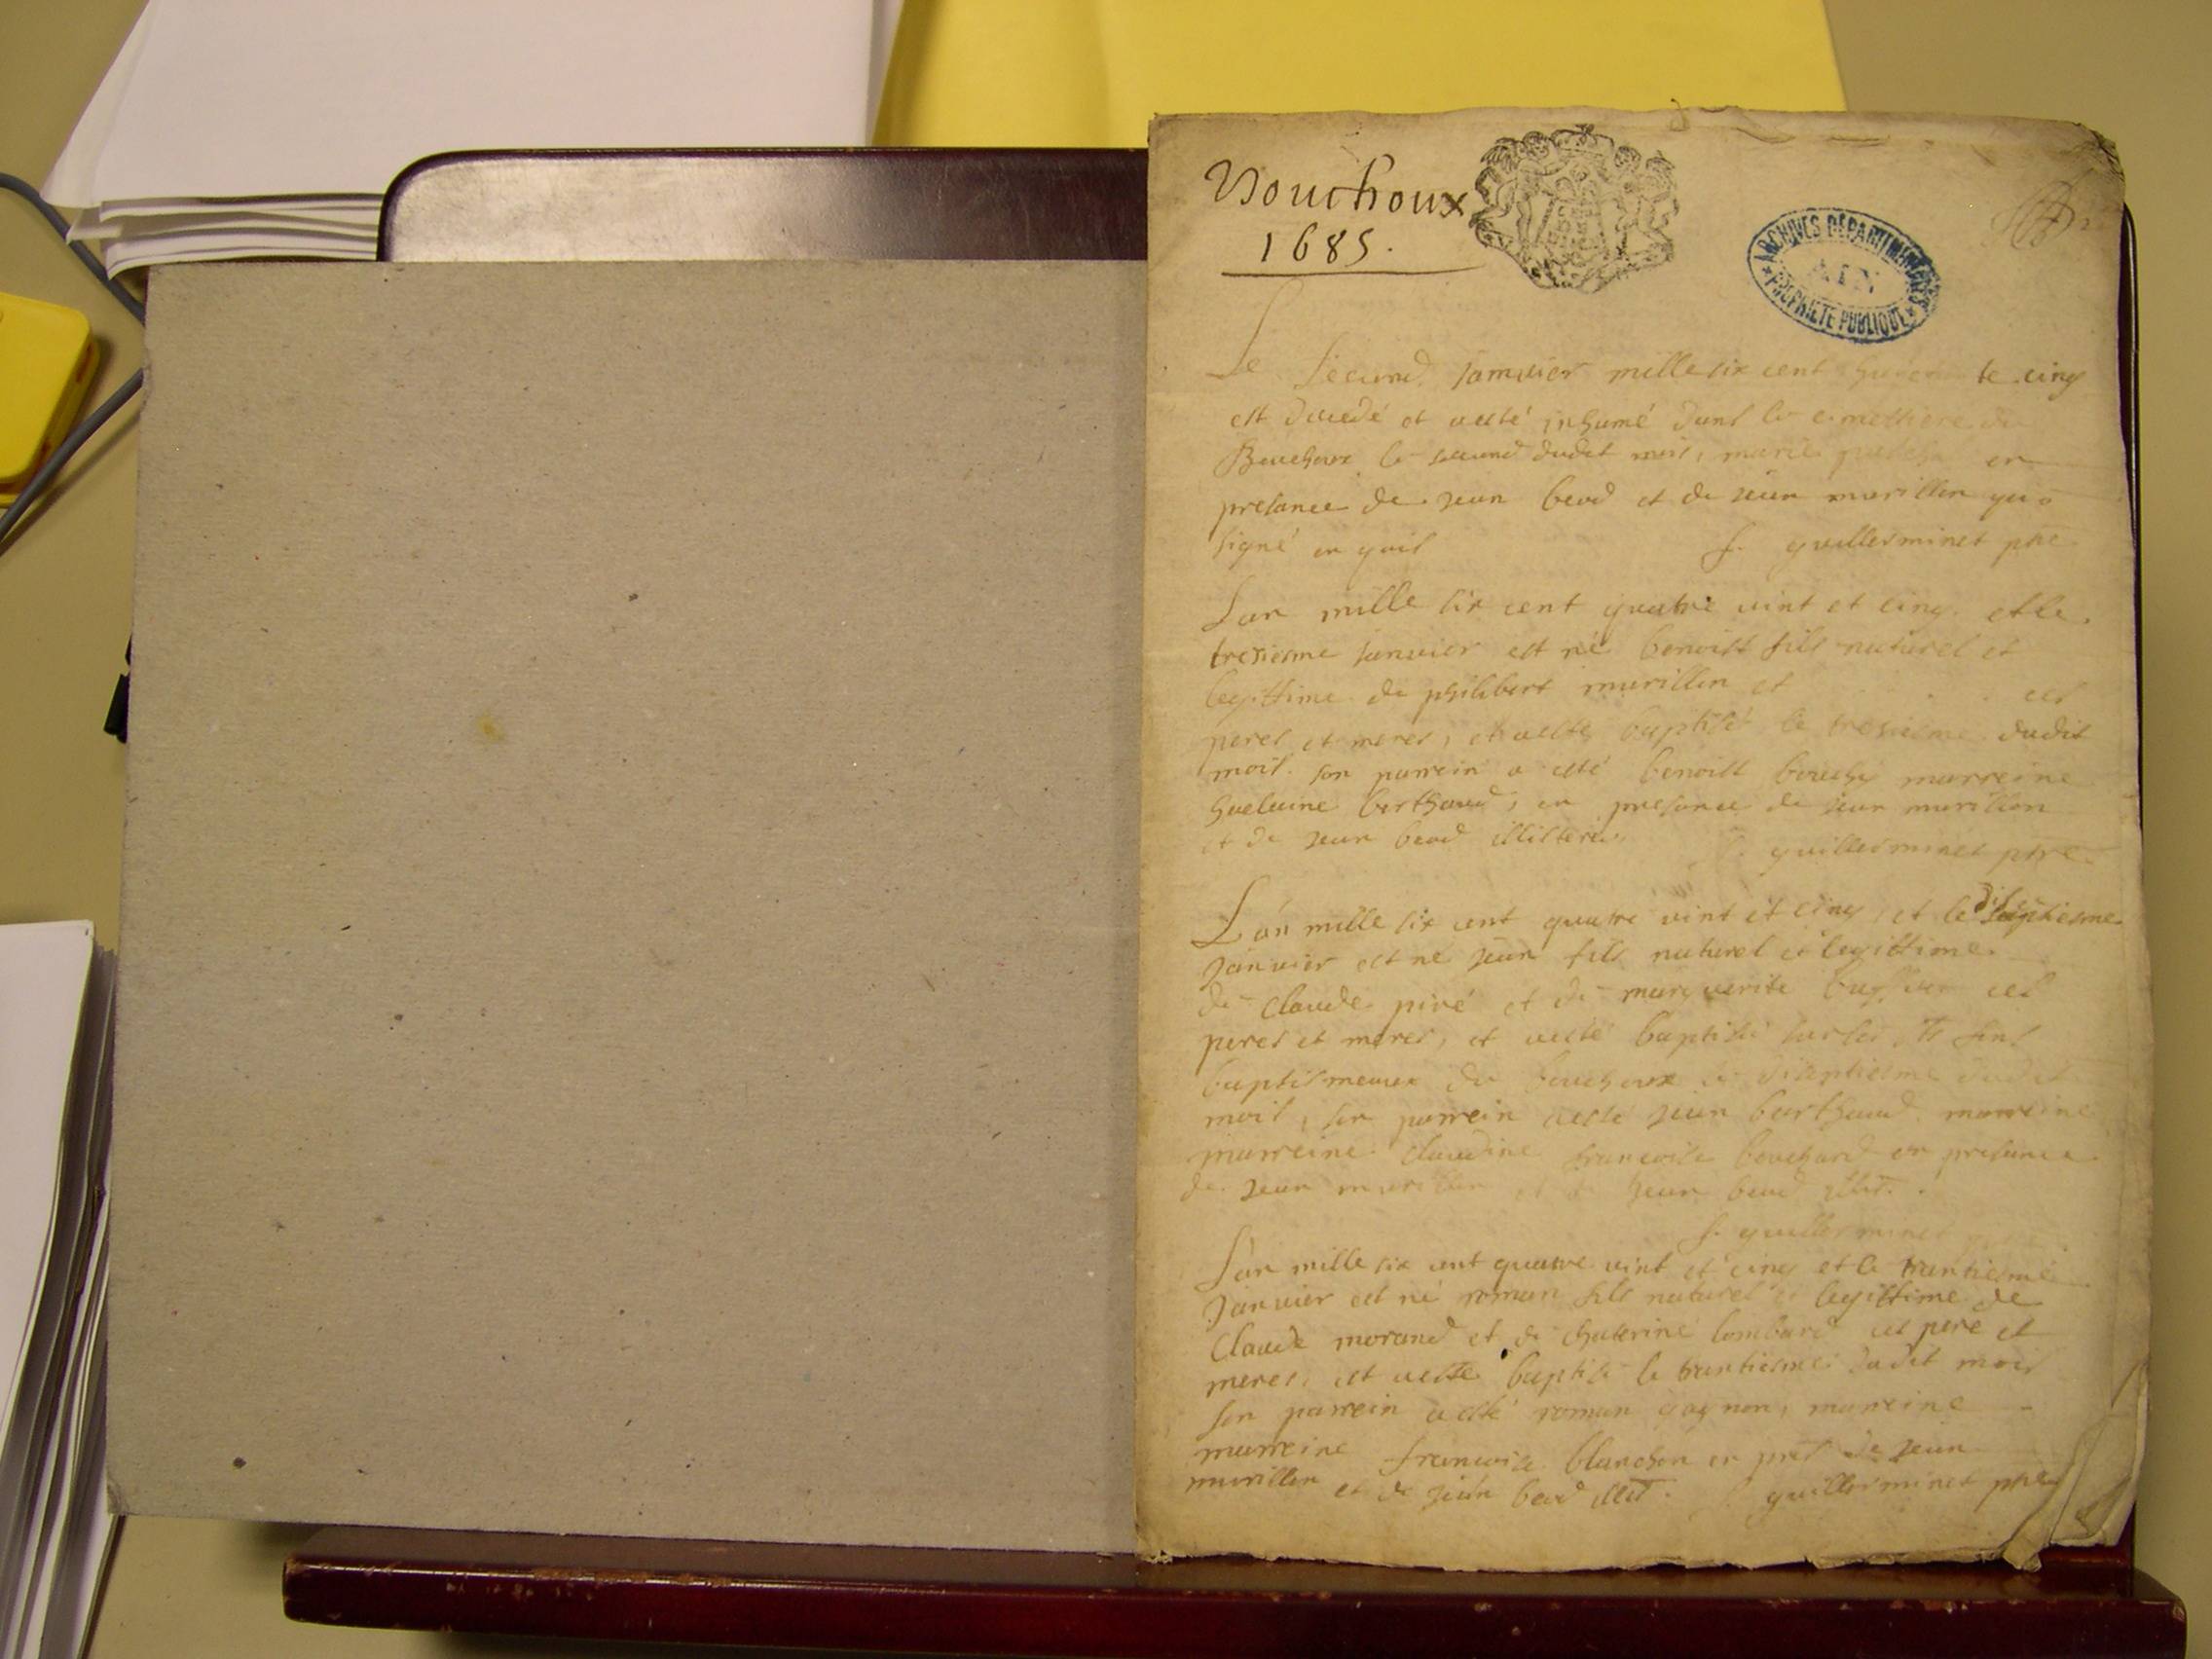 Nouchoux
1685.
ARCHIVES DÉPARTEMENTALES
AIN
PROPRIÉTÉ PUBLIQUE
Le second janvier mille six cent te cinq
est decedé et aesté inhumé dans le cimettiere du
Bouchoux le second dudit mois, marie en
presance de jean beod et de jean murillon
signé J. guillerminet ptre
Lan mille six cent quatre vint et cinq et le
tresiesme janvier est né benoist fils naturel et
legittime de philibert murillon et ces
peres et meres, et aeste baptisé le tresiesme dudit
mois son parrein a esté benoist marreine
berthaud, en presance de jean murillon
et de jean beod illitere guillerminet ptre
L'an mille six cent quatre vint et cinq et le diseptiesme
Janvier est né jean fils naturel et legittime
de Claude piré et de marguerite ces
peres et meres, et aesté baptisé sur les fons
baptismeaux du bouchoux le diseptiesme dudit
mois, son parrein aesté jean barthaud marreine
marreine claudine francoise bouchard en presance
de jean murillon et de jean beod illit.
J. guillerminet
Lan mille six cent quatre vint et cinq et le trantiesme
Janvier est né roman fils naturel et legittime de
Claude morand et de chaterine lombard ces pere et
meres, et aesté baptisé le trantiesme dudit mois
son parrein aesté roman gagnon, marreine
marreine francoise blanchon en pres de jean
murillon et de jean beod illit. guillerminet ptre